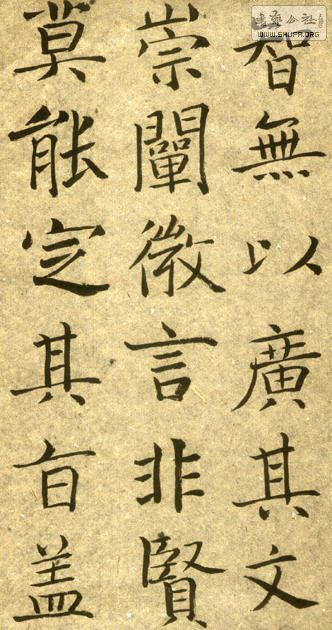 智無以廣其文
崇闡微言非賢
莫能定其旨盖
WWW.SHUFA.ORG